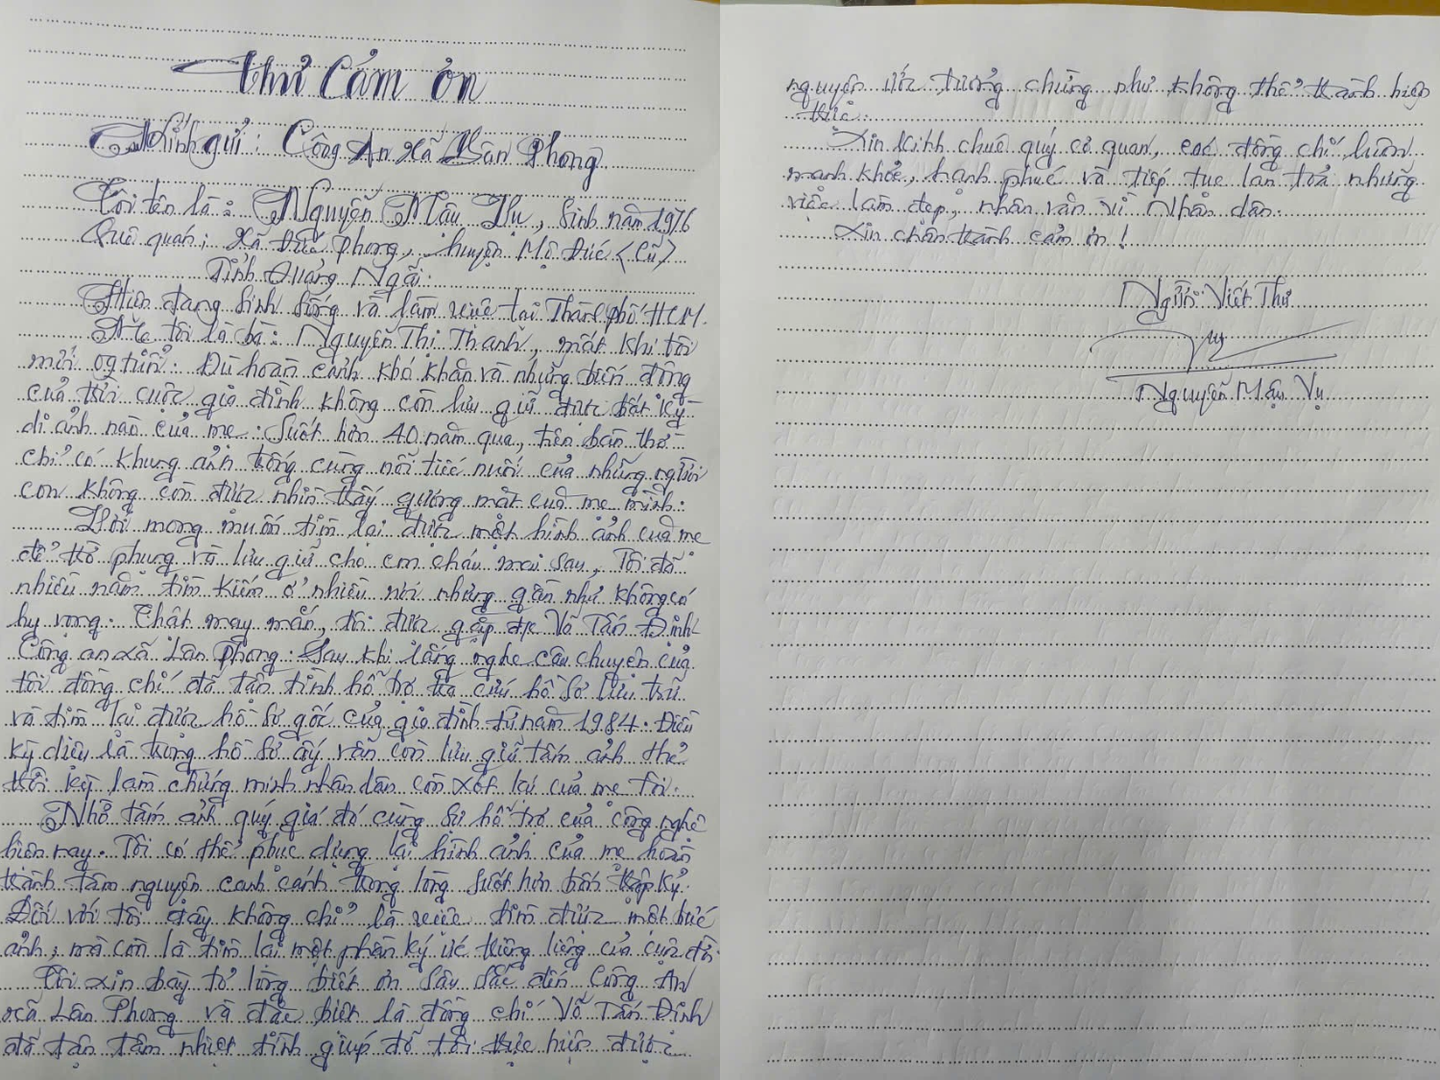 Thư Cảm ơn
Kính gửi: Công An xã Lân Phong
Tôi tên là: Nguyễn Mậu Vụ, Sinh năm 1976
Quê quán: Xã Đức phong, huyện Mộ Đức (Cũ)
Tỉnh Quảng Ngãi.
Hiện đang sinh sống và làm việc tại Thành phố HCM.
Mẹ tôi là bà: Nguyễn Thị Thanh, mất khi tôi
mới 09 tuổi. Dù hoàn cảnh khó khăn và những biến động
của thời cuộc gia đình không còn lưu giữ được bất kỳ
di ảnh nào của mẹ. Suốt hơn 40 năm qua, trên bàn thờ
chỉ có khung ảnh trống cùng nỗi tiếc nuối của những người
con không còn được nhìn thấy gương mặt của mẹ mình.
Với mong muốn tìm lại được một hình ảnh của mẹ
để thờ phụng và lưu giữ cho em cháu mai sau, Tôi đã
nhiều năm tìm kiếm ở nhiều nơi nhưng gần như không có
hy vọng. Thật may mắn, tôi được gặp đ/c Võ Tấn Định
Công an xã Lân Phong. Sau khi lắng nghe câu chuyện của
tôi đồng chí đã tận tình hỗ trợ tra cứu hồ sơ lưu trữ
và tìm lại được hồ sơ gốc của gia đình từ năm 1984. Điều
kỳ diệu là trong hồ sơ ấy vẫn còn lưu giữ tấm ảnh thẻ
thời kỳ làm chứng minh nhân dân còn sót lại của mẹ Tôi.
Nhờ tấm ảnh quý giá đó cùng sự hỗ trợ của công nghệ
hiện nay. Tôi có thể phục dựng lại hình ảnh của mẹ hoàn
thành tâm nguyện canh cánh trong lòng suốt hơn bốn thập kỷ.
Đối với tôi đây không chỉ là việc tìm được một bức
ảnh, mà còn là tìm lại một phần ký ức thiêng liêng của cuộc đời.
Tôi xin bày tỏ lòng biết ơn sâu sắc đến Công An
xã Lân Phong và đặc biệt là đồng chí Võ Tấn Định
đã tận tâm nhiệt tình giúp đỡ tôi thực hiện được
nguyện ước tưởng chừng như không thể thành hiện
thực.
Xin kính chúc quý cơ quan, các đồng chí, luôn
mạnh khỏe, hạnh phúc và tiếp tục lan toả những
việc làm đẹp, nhân văn vì Nhân dân.
Xin chân thành cảm ơn!
Người Viết Thư
Nguyễn Mậu Vụ